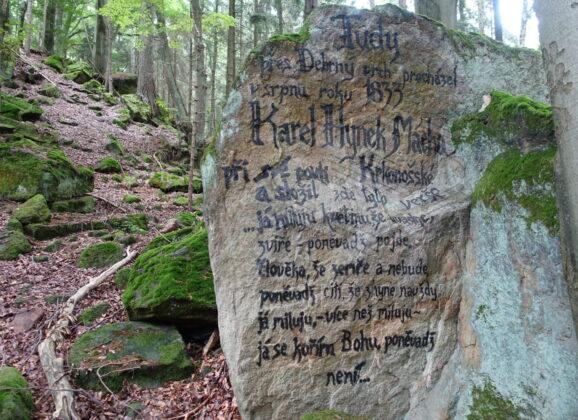 Tudy
přes Debrný vrch procházel
v srpnu roku 1833
Karel Hynek Mácha
při své pouti Krkonošské
a složil zde tyto verše
...Já miluju květinu, že uvadne,
zvíře - poněvadž pojde,
člověka, že zemře a nebude
poněvadž cítí, že zhyne navždy
Já miluju, - více než miluju -
já se kořím Bohu, poněvadž
není...